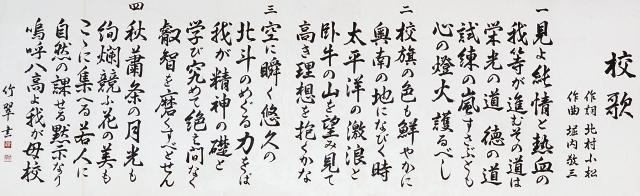 校歌
作詞 北村小松
作曲 堀内敬三
一 見よ純情と熱血の
我等が進むその道は
栄光の道 徳の道
試練の嵐すさぶとも
心の燈火護るべし
二 校旗の色も鮮やかに
奥南の地になびく時
太平洋の激浪と
臥牛の山を望み見て
高き理想を抱くかな
三 空に瞬く悠久の
北斗のめぐる力をば
我が精神の礎と
学び究めて絶え間なく
叡智を磨くすべとせん
四 秋蕭条の月光も
絢爛競ふ花の美も
こゝに集へる若人に
自然の課せる黙示なり
嗚呼八高よ我が母校
竹翠書